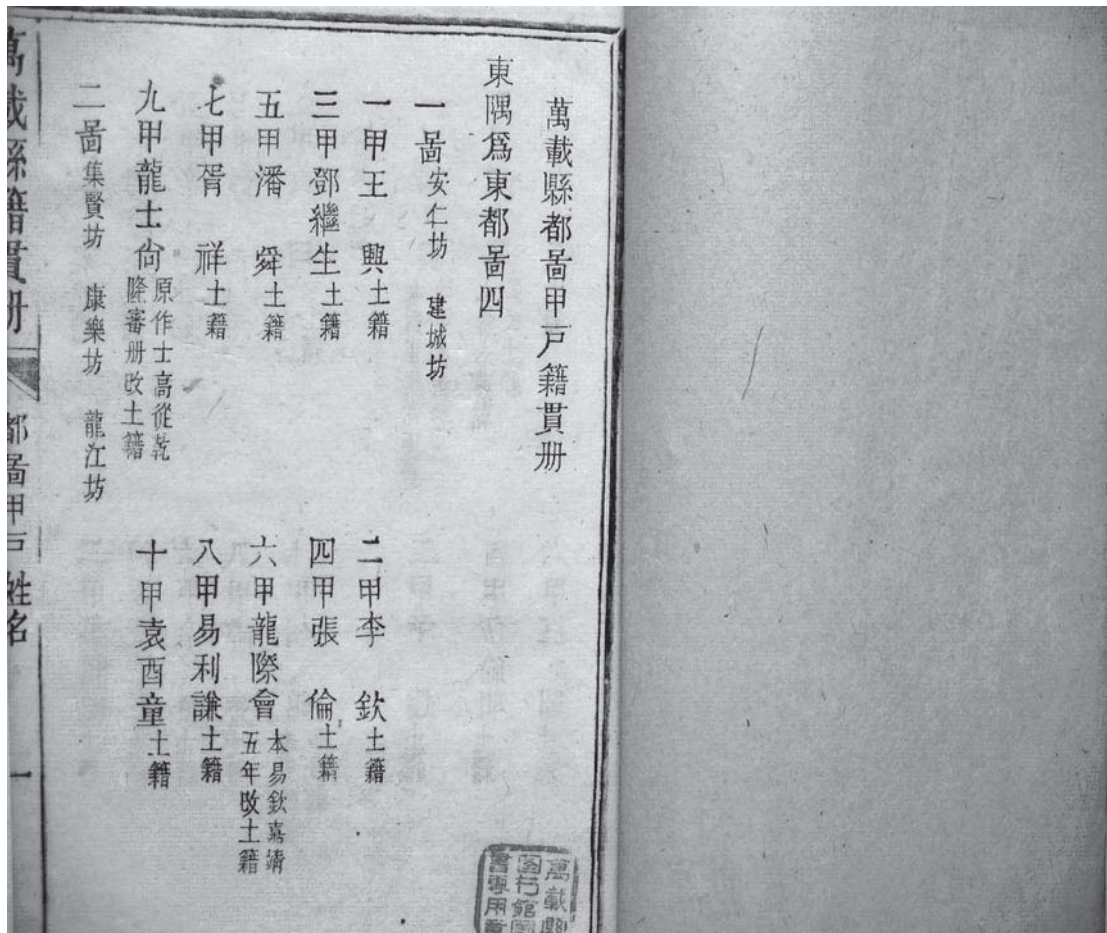 萬載縣都啚甲戶籍貫册
東隅爲東都啚四
一啚安仁坊 建城坊
一甲王 興土籍
二甲李 欽土籍
三甲鄧繼生土籍
四甲張 倫土籍
五甲潘 舜土籍
六甲龍際會本易欽嘉靖
五年改土籍
七甲胥 祥土籍
八甲易利謙土籍
九甲龍士尙原作士高從乾
隆審册改土籍
十甲袁酉童土籍
二啚集賢坊 康樂坊 龍江坊
萬載縣籍貫册
都啚甲戶姓名
一
萬載縣
圖書館圖
書專用章